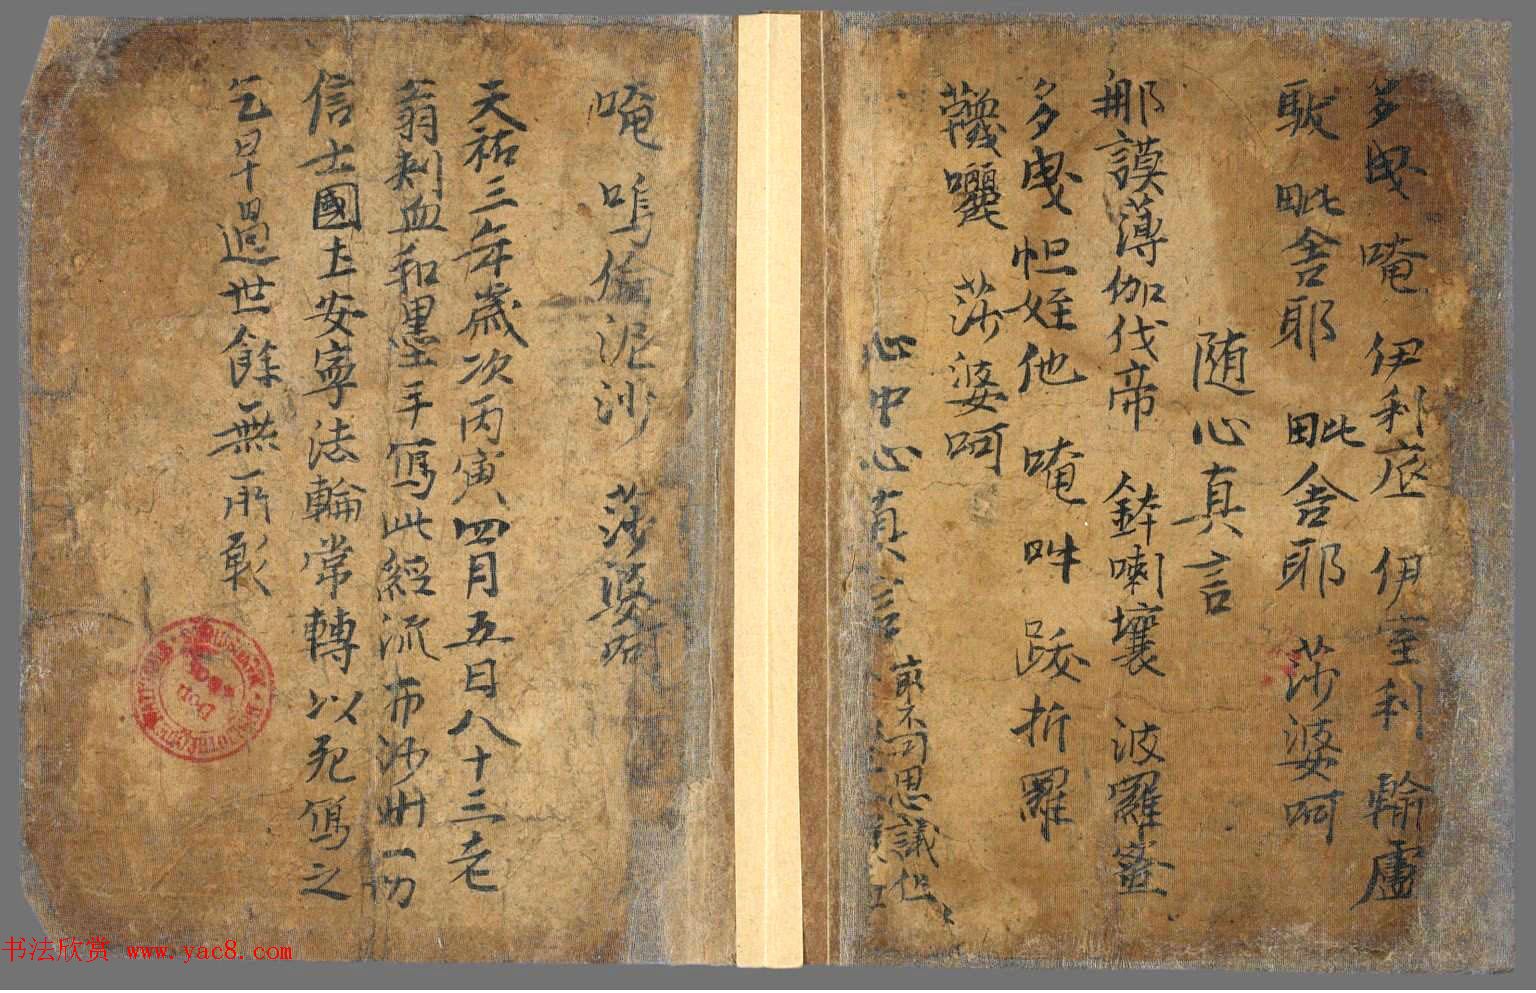 多曳 唵 伊利底 伊室利 輸盧
馱 毗舍耶 毗舍耶 莎婆呵
随心真言
那謨薄伽伐帝 鉢喇壤 波羅蜜
多曳 怛姪他 唵 吽 跋折羅
莎婆呵
心中心真言
不可思議
唵 嗚倫泥沙 莎婆呵
天祐三年歲次丙寅四月五日八十三老
翁刺血和墨手寫此經流布沙州一切
信士國土安寧法輪常轉以死寫之
乞早過世餘無所
书法欣赏 www.yac8.com